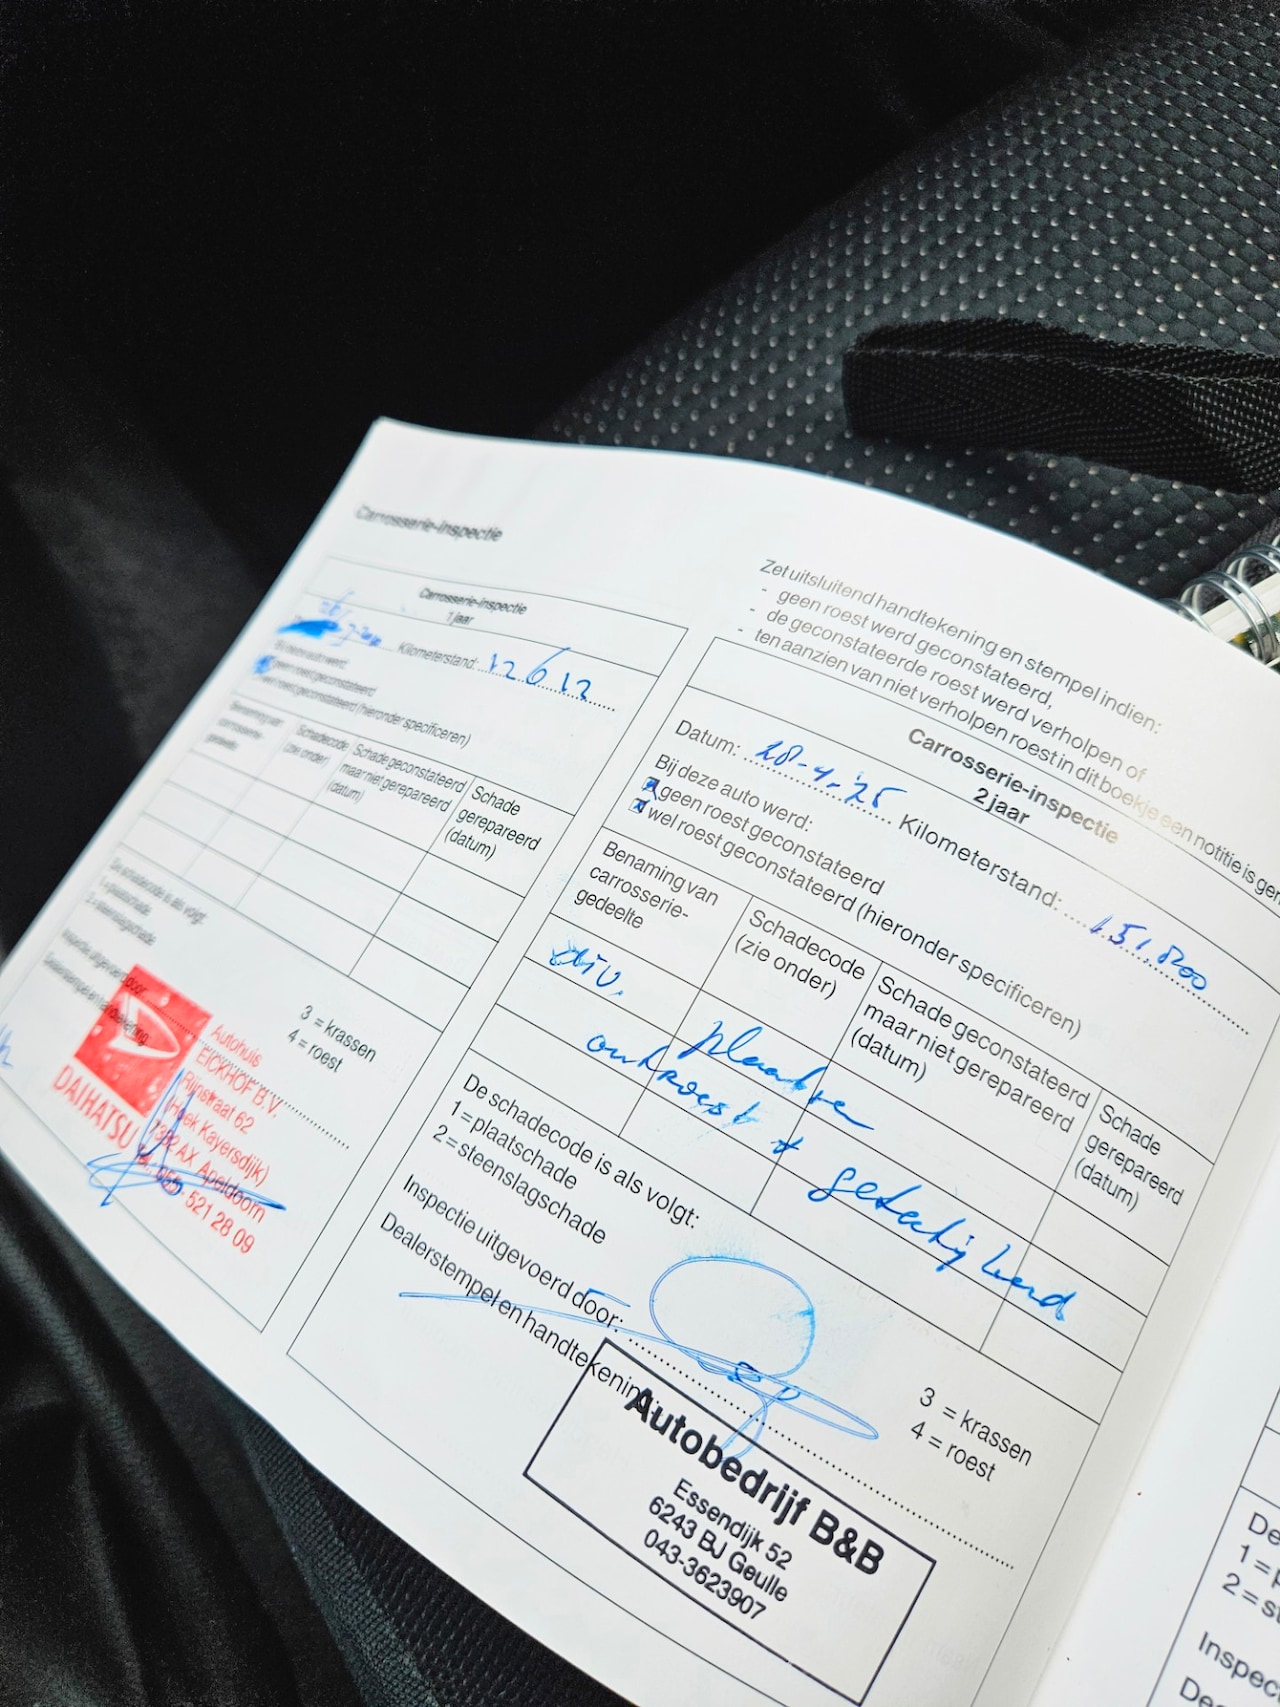 Carrosserie-inspectie
Carrosserie-inspectie
1 jaar
Kilometerstand: 12612
Bij deze auto werd:
geen roest geconstateerd
wel roest geconstateerd (hieronder specificeren)
Benaming van
carrosserie-
gedeelte
Schadecode
(zie onder)
Schade geconstateerd
maar niet gerepareerd
(datum)
Schade
gerepareerd
(datum)
De schadecode is als volgt:
1 = plaatschade
2 = steenslagschade
3 = krassen
4 = roest
Inspectie uitgevoerd door:
Dealerstempel en handtekening
DAIHATSU
Autohuis
EICKHOF B.V.
Rijnstraat 62
(Hoek Kayersdijk)
7332 AX Apeldoorn
Tel. 055 - 521 28 09
Zet uitsluitend handtekening en stempel indien:
- geen roest werd geconstateerd,
- de geconstateerde roest werd verholpen of
- ten aanzien van niet verholpen roest in dit boekje een notitie is
Carrosserie-inspectie
2 jaar
Datum: 28-4-'25 Kilometerstand: 151.800
Bij deze auto werd:
geen roest geconstateerd
wel roest geconstateerd (hieronder specificeren)
Benaming van
carrosserie-
gedeelte
Schadecode
(zie onder)
Schade geconstateerd
maar niet gerepareerd
(datum)
Schade
gerepareerd
(datum)
div. plaatsen
ontroest + getectyleerd
De schadecode is als volgt:
1 = plaatschade
2 = steenslagschade
3 = krassen
4 = roest
Inspectie uitgevoerd door:
Dealerstempel en handtekening
Autobedrijf B&B
Essendijk 52
6243 BJ Geulle
043-3623907
De
1 =
2 =